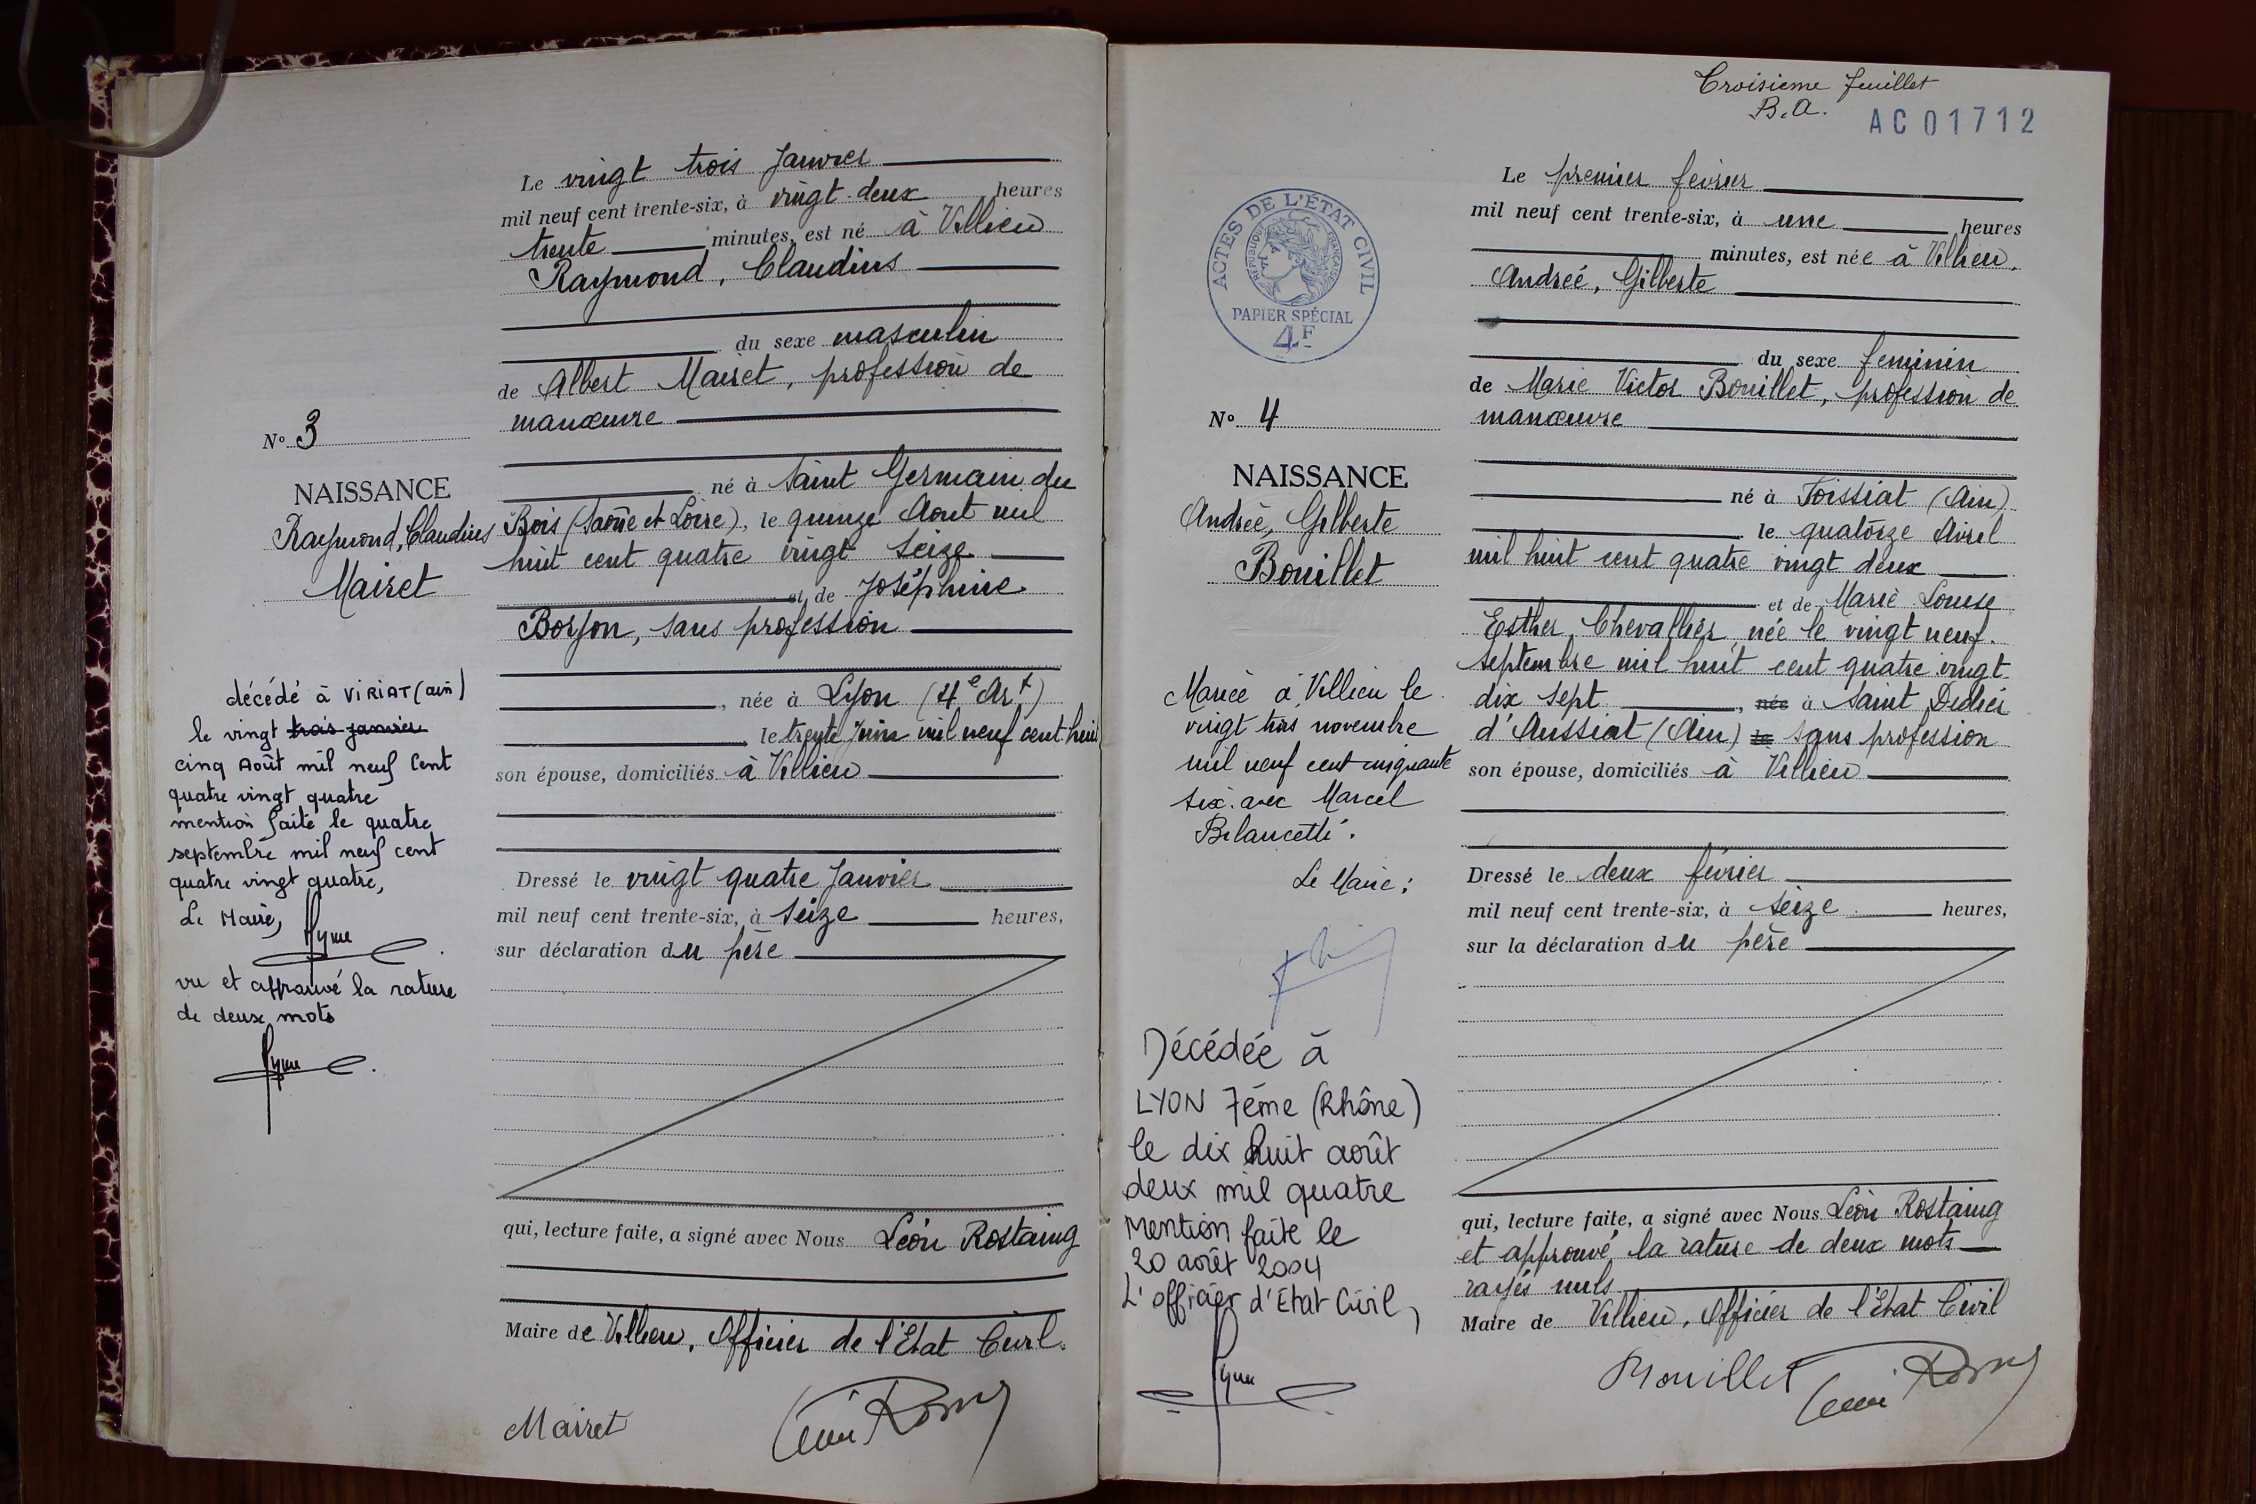 Le vingt trois Janvier
mil neuf cent trente-six, à vingt-deux heures
trente minutes, est né à Villieu
Raymond, Claudius
du sexe masculin
de Albert Mairet, profession de
manœuvre
N° 3
NAISSANCE
Raymond, Claudius
Mairet
né à Saint Germain du
Bois (Saône et Loire), le quinze Aout mil
huit cent quatre vingt seize
et de Joséphine
Borjon, sans profession
, née à Lyon (4e Art)
le trente Juin mil neuf cent huit
son épouse, domiciliés à Villieu
décédé à VIRIAT (ain)
le vingt trois janvier
cinq Août mil neuf Cent
quatre vingt quatre
mention faite le quatre
septembre mil neuf cent
quatre vingt quatre,
Le Maire,
vu et approuvé la rature
de deux mots
Dressé le vingt quatre Janvier
mil neuf cent trente-six, à seize heures,
sur déclaration du père
qui, lecture faite, a signé avec Nous Léon Rostaing
Maire de Villieu, Officier de l'Etat Civil.
Mairet
Troisieme feuillet
B.A.
AC01712
ACTES DE L'ÉTAT CIVIL
RÉPUBLIQUE FRANÇAISE
PAPIER SPÉCIAL
4F
Le premier février
mil neuf cent trente-six, à une heures
minutes, est née à Villieu,
Andreé, Gilberte
du sexe feminin
de Marie Victor Bouillet, profession de
manœuvre
N° 4
NAISSANCE
Andreé, Gilberte
Bouillet
né à Foissiat (Ain)
le quatorze Avril
mil huit cent quatre vingt deux
et de Marie Louise
Esther, Chevallier, née le vingt neuf
septembre mil huit cent quatre vingt
dix sept , née à Saint Didier
d'Aussiat (Ain) le sans profession
son épouse, domiciliés à Villieu
Mariée à Villieu le
vingt trois novembre
mil neuf cent cinquante
six avec Marcel
Bilancetti.
Le Maire :
Décédée à
LYON 7éme (Rhône)
le dix huit août
deux mil quatre
Mention faite le
20 août 2004
L'officier d'Etat Civil,
Dressé le deux février
mil neuf cent trente-six, à seize heures,
sur la déclaration du père
qui, lecture faite, a signé avec Nous Léon Rostaing
et approuvé la rature de deux mots
rayés nuls
Maire de Villieu, Officier de l'Etat Civil
Bouillet